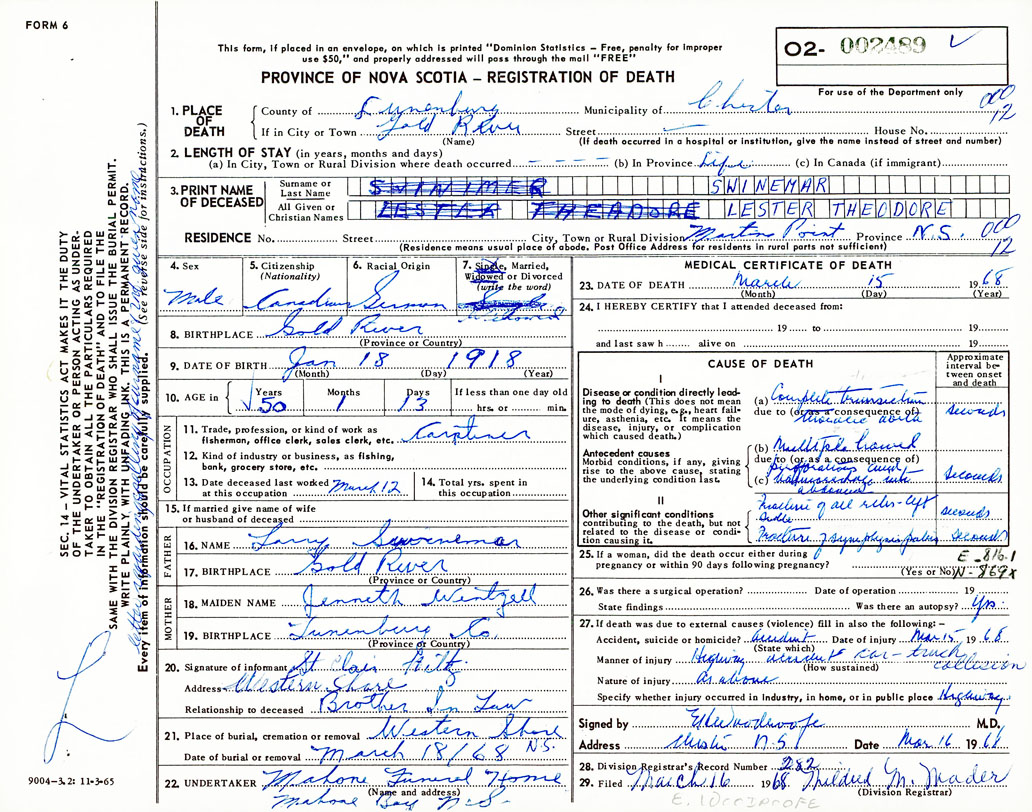 FORM 6
This form, if placed in an envelope, on which is printed "Dominion Statistics – Free, penalty for improper
use $50," and properly addressed will pass through the mail "FREE"
PROVINCE OF NOVA SCOTIA – REGISTRATION OF DEATH
O2- 002489
For use of the Department only
1. PLACE OF DEATH
County of Lunenburg Municipality of Chester
If in City or Town Gold River Street House No.
(Name) (If death occurred in a hospital or institution, give the name instead of street and number)
000
12
2. LENGTH OF STAY (in years, months and days)
(a) In City, Town or Rural Division where death occurred (b) In Province Life (c) In Canada (if immigrant)
3. PRINT NAME OF DECEASED
Surname or Last Name SWINIMER SWINEMAR
All Given or Christian Names LESTER THEADORE LESTER THEODORE
RESIDENCE No. Street City, Town or Rural Division Martins Point Province N.S.
(Residence means usual place of abode. Post Office Address for residents in rural parts not sufficient)
000
12
4. Sex
Male
5. Citizenship
(Nationality)
Canadian
6. Racial Origin
German
7. Single, Married,
Widowed or Divorced
(write the word)
Widowed
8. BIRTHPLACE Gold River
(Province or Country)
9. DATE OF BIRTH Jan 18 1918
(Month) (Day) (Year)
10. AGE in Years 50 Months 1 Days 13 If less than one day old
hrs. or min.
OCCUPATION
11. Trade, profession, or kind of work as
fisherman, office clerk, sales clerk, etc.
12. Kind of industry or business, as fishing,
bank, grocery store, etc.
13. Date deceased last worked at this occupation March 12
14. Total yrs. spent in this occupation
15. If married give name of wife
or husband of deceased
FATHER
16. NAME Larry Swinemar
17. BIRTHPLACE Gold River
(Province or Country)
MOTHER
18. MAIDEN NAME Jenneth Wentzell
19. BIRTHPLACE Lunenburg Co.
(Province or Country)
20. Signature of informant St Clair Hiltz
Address Western Shore
Relationship to deceased Brother In Law
21. Place of burial, cremation or removal Western Shore
N.S.
Date of burial or removal March 18/68
22. UNDERTAKER Mahone Funeral Home
(Name and address)
Mahone Bay N.S.
MEDICAL CERTIFICATE OF DEATH
23. DATE OF DEATH March 15 1968
(Month) (Day) (Year)
24. I HEREBY CERTIFY that I attended deceased from:
19 to 19
and last saw h alive on 19
CAUSE OF DEATH
Approximate interval between onset and death
I
Disease or condition directly lead-
ing to death (This does not mean
the mode of dying, e.g., heart fail-
ure, asthenia, etc. It means the
disease, injury, or complication
which caused death.)
(a) Complete transection
due to (or as a consequence of)
thoracic aorta
seconds
Antecedent causes
Morbid conditions, if any, giving
rise to the above cause, stating
the underlying condition last.
(b) Multiple bowel
due to (or as a consequence of)
perforations
(c) haemorrhage into
abdomen
seconds
II
Other significant conditions
contributing to the death, but not
related to the disease or condi-
tion causing it.
Fracture of all ribs - left
side
seconds
Fracture of symphysis pubis seconds
25. If a woman, did the death occur either during
pregnancy or within 90 days following pregnancy?
(Yes or No)
E -816.1
N-869x
26. Was there a surgical operation? Date of operation 19
State findings Was there an autopsy? Yes
27. If death was due to external causes (violence) fill in also the following: –
Accident, suicide or homicide? Accident Date of injury Mar 15 1968
(State which)
Manner of injury Highway accident car-truck collision
(How sustained)
Nature of injury as above
Specify whether injury occurred in industry, in home, or in public place highway
Signed by M.D.
Address Chester N.S. Date Mar 16 1968
28. Division Registrar's Record Number 282
29. Filed March 16 1968 Mildred M. Mader
(Division Registrar)
E. WOODROOFE
9004-3.2: 11-3-65
SEC. 14 – VITAL STATISTICS ACT MAKES IT THE DUTY
OF THE UNDERTAKER OR PERSON ACTING AS UNDER-
TAKER TO OBTAIN ALL THE PARTICULARS REQUIRED
IN THE "REGISTRATION OF DEATH" AND TO FILE THE
SAME WITH THE DIVISION REGISTRAR WHO SHALL ISSUE THE BURIAL PERMIT.
WRITE PLAINLY, WITH UNFADING INK, THIS IS A PERMANENT RECORD.
Every item of information should be carefully supplied. (See reverse side for instructions.)